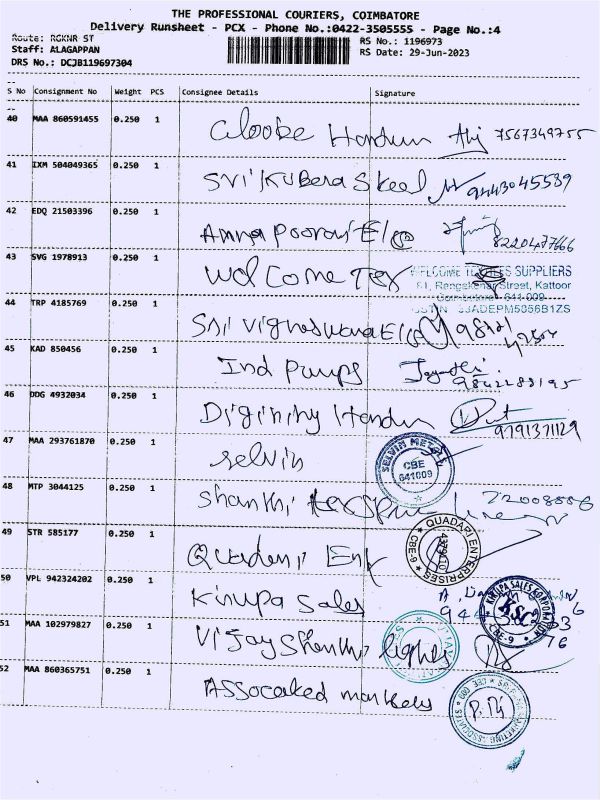 THE PROFESSIONAL COURIERS, COIMBATORE
Delivery Runsheet - PCX - Phone No.:0422-3505555 - Page No.:4
Route: RGKNR ST RS No.: 1196973
Staff: ALAGAPPAN RS Date: 29-Jun-2023
DRS No.: DCJB119697304
S No Consignment No Weight PCS Consignee Details Signature
40 MAA 860591455 0.250 1 Hardun 7567349755
41 IXM 504049365 0.250 1 Sri Kubera Steel 9443045539
42 EDQ 21503396 0.250 1 Annapoorani Ele 8220477666
43 SVG 1978913 0.250 1 Welcome Tex
WELCOME TEXTILES SUPPLIERS
81, Rengakonar Street, Kattoor
Coimbatore - 641 009
GSTIN 33ADEPM5056B1ZS
44 TRP 4185769 0.250 1 Sri Vigneswara Ele
45 KAD 850456 0.250 1 Ind Pumps
46 DDG 4932034 0.250 1 Hardun 9791371129
47 MAA 293761870 0.250 1 Selvin
SELVIN METALS CBE 641009
48 MTP 3044125 0.250 1 Shanthi
49 STR 585177 0.250 1 Quaderi Ent
QUADARI ENTERPRISES CBE-9
50 VPL 942324202 0.250 1 Kirupa Sales
KIRUPA SALES CORPORATION KSC CBE-9
51 MAA 102979827 0.250 1 Vijay Shanthi Lights
52 MAA 860365751 0.250 1 Assocaked markely